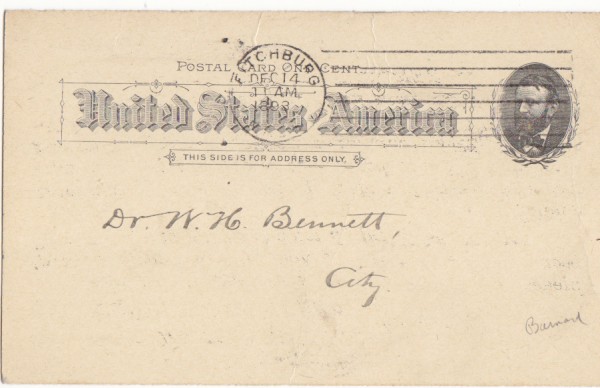 POSTAL CARD ONE CENT.
FITCHBURG
DEC 14
11 AM
United States America
THIS SIDE IS FOR ADDRESS ONLY.
Dr. W. H. Bennett,
City.
Barnard